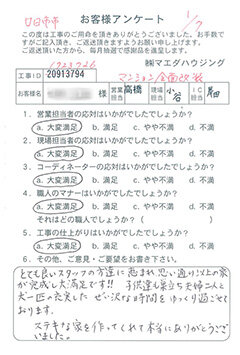 廿日市市
お客様アンケート
1/7
この度は工事のご用命を頂きありがとうございました。お手数で
すがご記入頂き、ご返送頂きますようお願い申し上げます。
ご返送頂いた方から、毎月抽選で感謝品を進呈します。
1723726
㈱マエダハウジング
工事ID 20913794
マンション全面改装
お客様名 様
営業担当 高橋 現場担当 小谷 IC担当
1. 営業担当者の応対はいかがでしたでしょうか?
a. 大変満足 b. 満足 c. やや不満 d. 不満
2. 現場担当者の応対はいかがでしたでしょうか?
a. 大変満足 b. 満足 c. やや不満 d. 不満
3. コーディネーターの応対はいかがでしたでしょうか?
a. 大変満足 b. 満足 c. やや不満 d. 不満
4. 職人のマナーはいかがでしたでしょうか?
a. 大変満足 b. 満足 c. やや不満 d. 不満
それはどの職人でしょうか? ( )
5. 工事の仕上がりはいかがでしたでしょうか?
a. 大変満足 b. 満足 c. やや不満 d. 不満
6. その他、ご意見・ご要望をお聞かせ下さい。
とても良いスタッフの方達に恵まれ思い通り以上の家
が完成し大満足です!! 子供達も巣立ち夫婦二人と
犬一匹の充実した ぜい沢な時間をゆっくり過ごせて
おります。
ステキな家を作ってくれて本当にありがとうござ
いました。